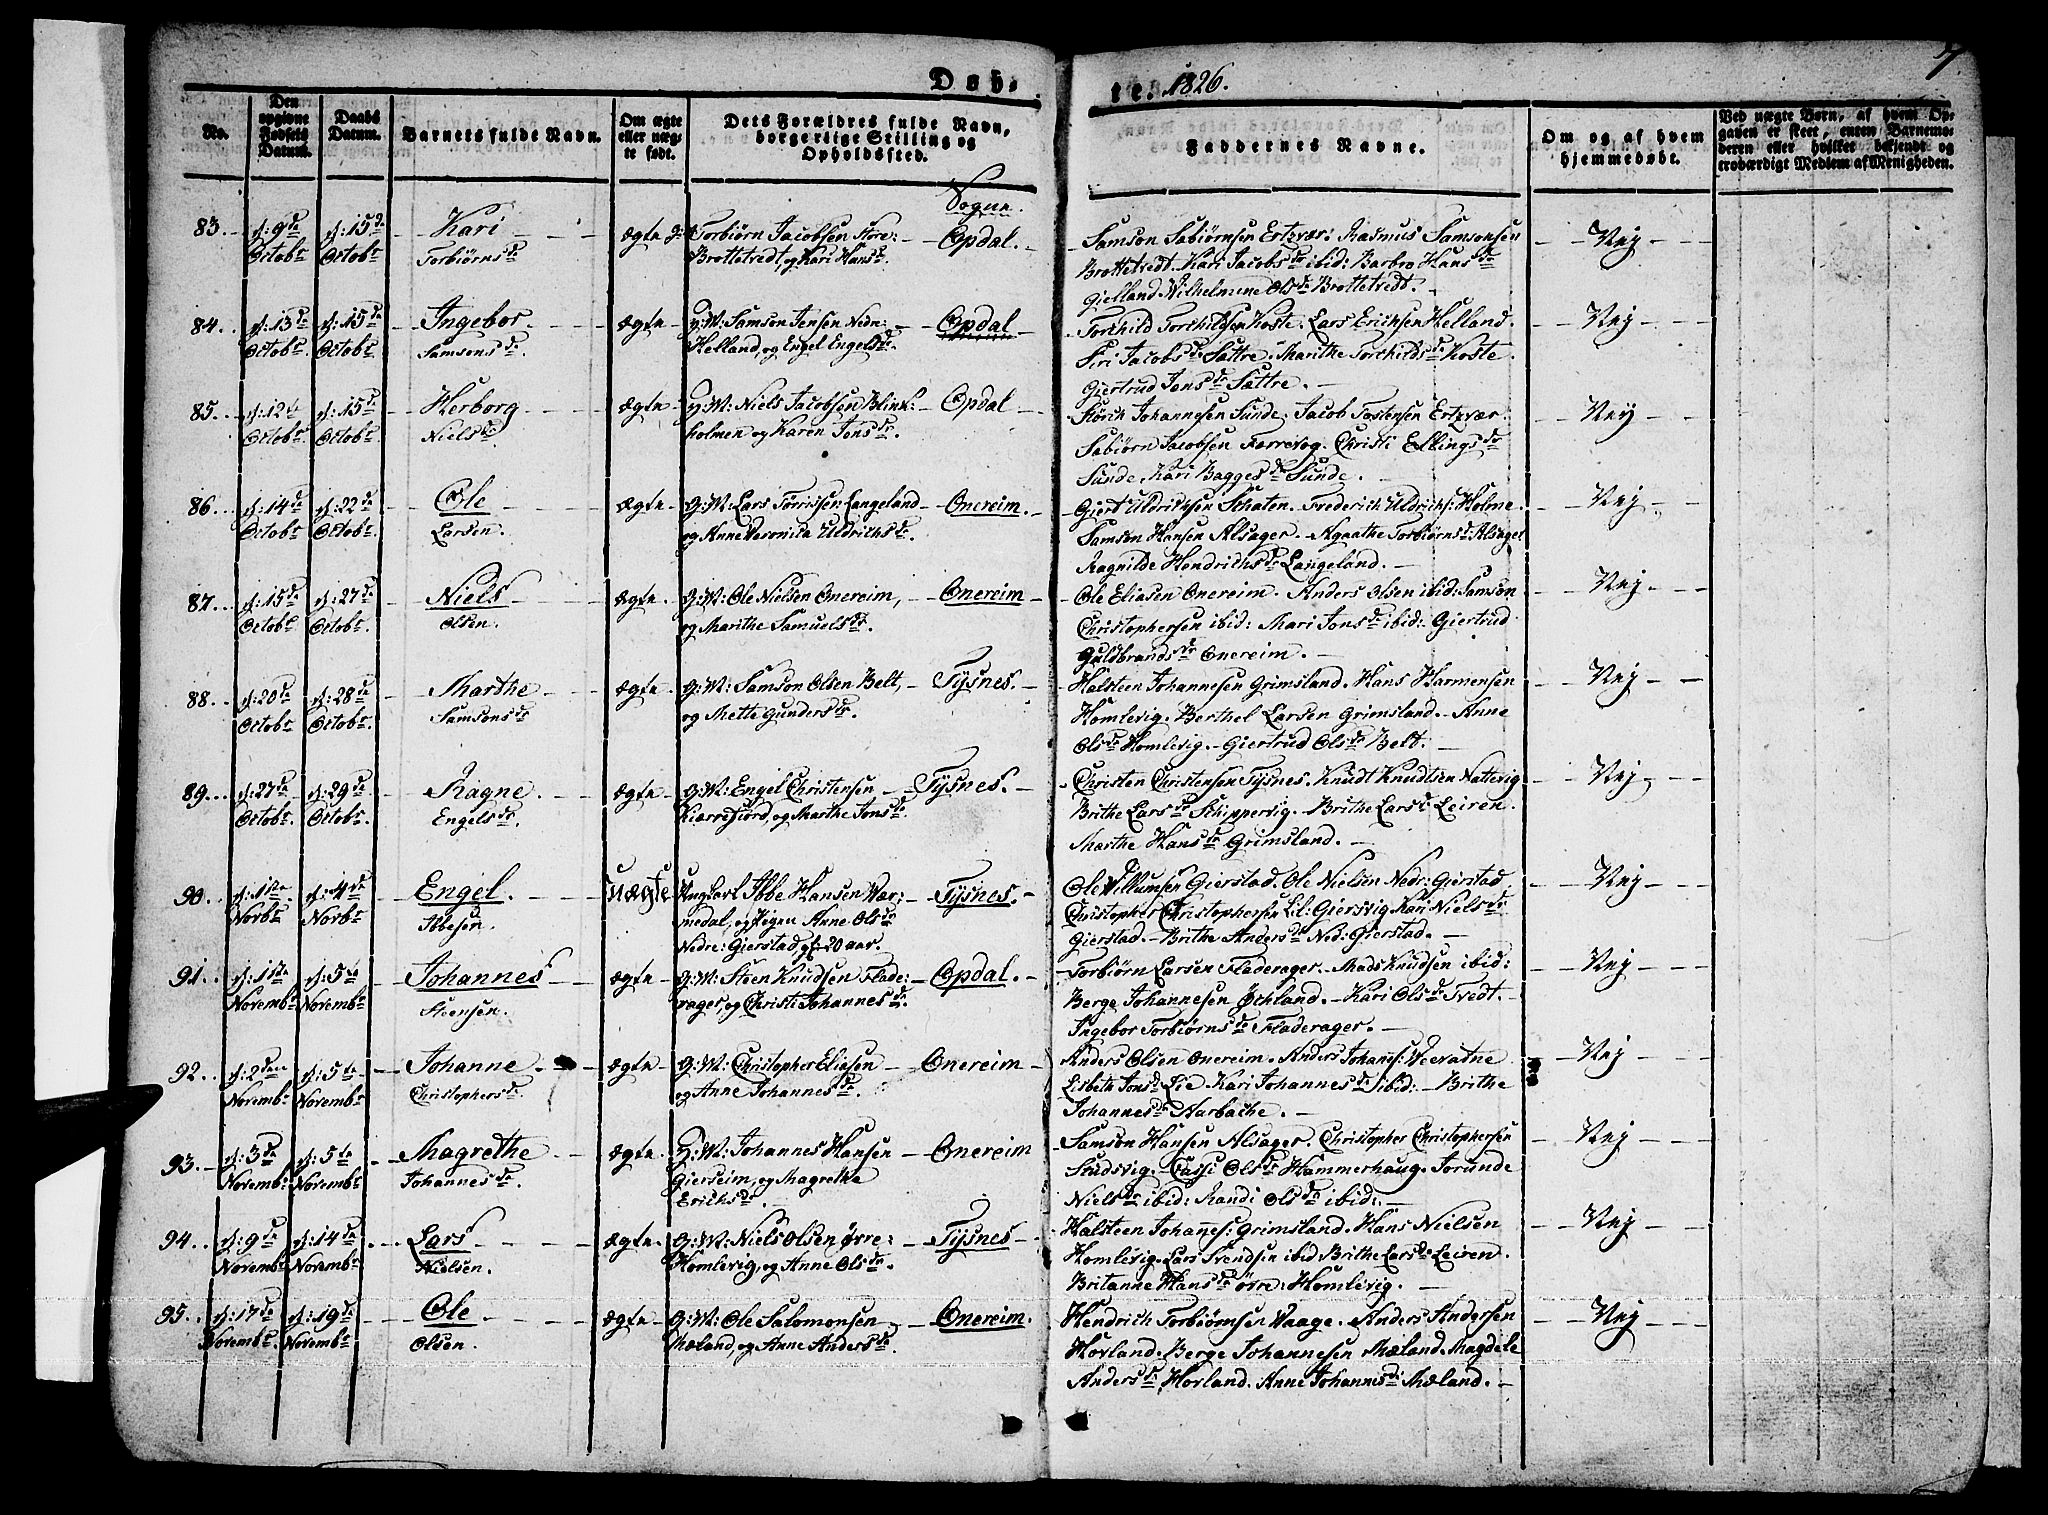 Døb-
te. 1826.
7
No.
Den opgivne Fødsels Datum.
Daabs Datum.
Barnets fulde Navn.
Om ægte eller uægte født.
Dets Forældres fulde Navn, borgerlige Stilling og Opholdssted.
Faddernes Navne.
Om og af hvem hjemmedøbt.
Ved uægte Børn, af hvem Opgaven er skeet, enten Barnemoderen eller hvilket bekjendt og troværdigt Medlem af Menigheden.
Sogne.
83. d: 9de Octobr d: 15de Octobr Kari Torbiørnsdr ægte Torbiørn Jacobsen Store: Brottetvedt, og Kari Hansdr Opdal.
Samson Sabiørnsen Ertzvær: Rasmus Samsonsen
Brottetvedt. Kari Jacobsdr ibid: Barbro Hansdr
Gielland. Wilhelmine Olsdr Brottetvedt.
Nej
84. d: 13de Octobr d: 15de Octobr Ingebor Samsonsdr ægte G: M: Samson Jensen Nedr: Helland, og Engel Engelsdr. Opdal
Torchild Torchildsen Koste. Lars Erichsen Helland.
Siri Jacobsdr Sættre. Marithe Torchildsdr Koste.
Giertrud Jonsdr Sættre.
Nej
85. d: 12te Octobr d: 15de Octobr Herborg Nielsdr ægte G: M: Niels Jacobsen Blink: holmen og Karen Jonsdr. Opdal
Størch Johannesen Sunde. Jacob Tostensen Ertzvær:
Sabiørn Jacobsen Færrevog. Christi Ellingsdr
Sunde. Kari Baggesdr Sunde.
Nej
86. d: 14de Octobr d: 22de Octobr Ole Larsen. ægte G: M: Lars Torrisen Langeland og Anne Veronica Uldrichsdr. Onereim.
Giert Uldrichsen Skaten. Frederich Uldrichs: Holme.
Samson Hansen Alsager. Agathe Torbiørnsdr Alsager
Ragnilde Hendrichsdr Langeland.
Nej
87. d: 15de Octobr d: 27de Octobr. Niels Olsen. ægte G: M: Ole Nielsen Onereim, og Marithe Samuelsdr. Onereim
Ole Eliasen Onereim. Anders Olsen ibid: Samson
Christophersen ibid: Mari Jonsdr ibid: Giertrud
Guldbrandsdr Onereim.
Nej
88. d: 20de Octobr d: 28de Octobr. Marthe Samsonsdr ægte G: M: Samson Olsen Belt, og Mette Gundersdr. Tysnes.
Halsteen Johannesen Grimsland. Hans Harmensen
Homlevig. Berthel Larsen Grimsland. Anne
Olsdr Homlevig. Giertrud Olsdr Belt.
Nej
89. d: 27de Octobr. d: 29de Octobr. Ragne. Engelsdr. ægte G: M: Engel Christensen Kierrefiord, og Marthe Jonsdr. Tysnes.
Christen Christensen Tysnes. Knudt Knudtsen Natevig
Brithe Larsdr Schippervig. Brithe Larsdr Leiren.
Marthe Hansdr Grimsland.
Nej
90. d: 1ste Novbr d: 4de Novbr Engel. Ibbesen. uægte Ungkarl Ibbe Hansen Vær: medal, og Pigen Anne Olsdr Nedre: Gierstad, gl: 20 aar. Tysnes.
Ole Villumsen Gierstad. Ole Nielsen Nedr: Gierstad
Christopher Christophersen Lil: Giersvig Kari Nielsdr
Gierstad. Brithe Andersdr Ned: Gierstad.
Nej
91. d: 1ste Novembr d: 5te Novembr Johannes Steensen. ægte G: M: Steen Knudsen Flade: rager, og Christi Johannesdr. Opdal.
Torbiørn Larsen Fladerager. Mads Knudsen ibid:
Berge Johannesen Øchland. Kari Olsdr Tvedt.
Ingebor Torbiørnsdr Fladerager.
Nej
92. d: 2den Novembr d: 5te Novembr Johanne Christophersdr. ægte G: M: Christopher Eliasen og Anne Johannesdr. Onereim
Anders Olsen Onereim. Anders Johanes: Veevatne
Lisbeth Jonsdr Lie Kari Johannesdr ibid: Brithe
Johannesdr Aarbache.
Nej
93. d: 3de Novembr d: 5te Novembr Magrethe Johannesdr. ægte G: M: Johannes Hansen Gierseim, og Magrethe Erichsdr. Onereim
Samson Hansen Alsager. Christopher Christophersen
Sudsvig. Olsdr Hammerhaug. Jorunde
Nielsdr ibid: Randi Olsdr ibid:
Nej
94. d: 9de Novembr d: 14de Novembr Lars Nielsen. ægte G: M: Niels Olsen Øvre: Homlevig, og Anne Olsdr. Tysnes
Halsteen Johanes: Grimsland. Hans Nielsen
Homlevig. Lars Svendsen ibid Brithe Larsdr Leiren.
Britanne Hansdr Øvre: Homlevig.
Nej
95. d: 17de Novembr. d: 19de Novembr Ole Olsen. ægte G: M: Ole Salomonsen Mæland, og Anne Andersdr. Onereim.
Hendrich Torbiørnsen Vaage. Anders Andersen
Hovland. Berge Johannesen Mæland. Magdele
Andersdr Hovland. Anne Johannisdr Mæland.
Nej